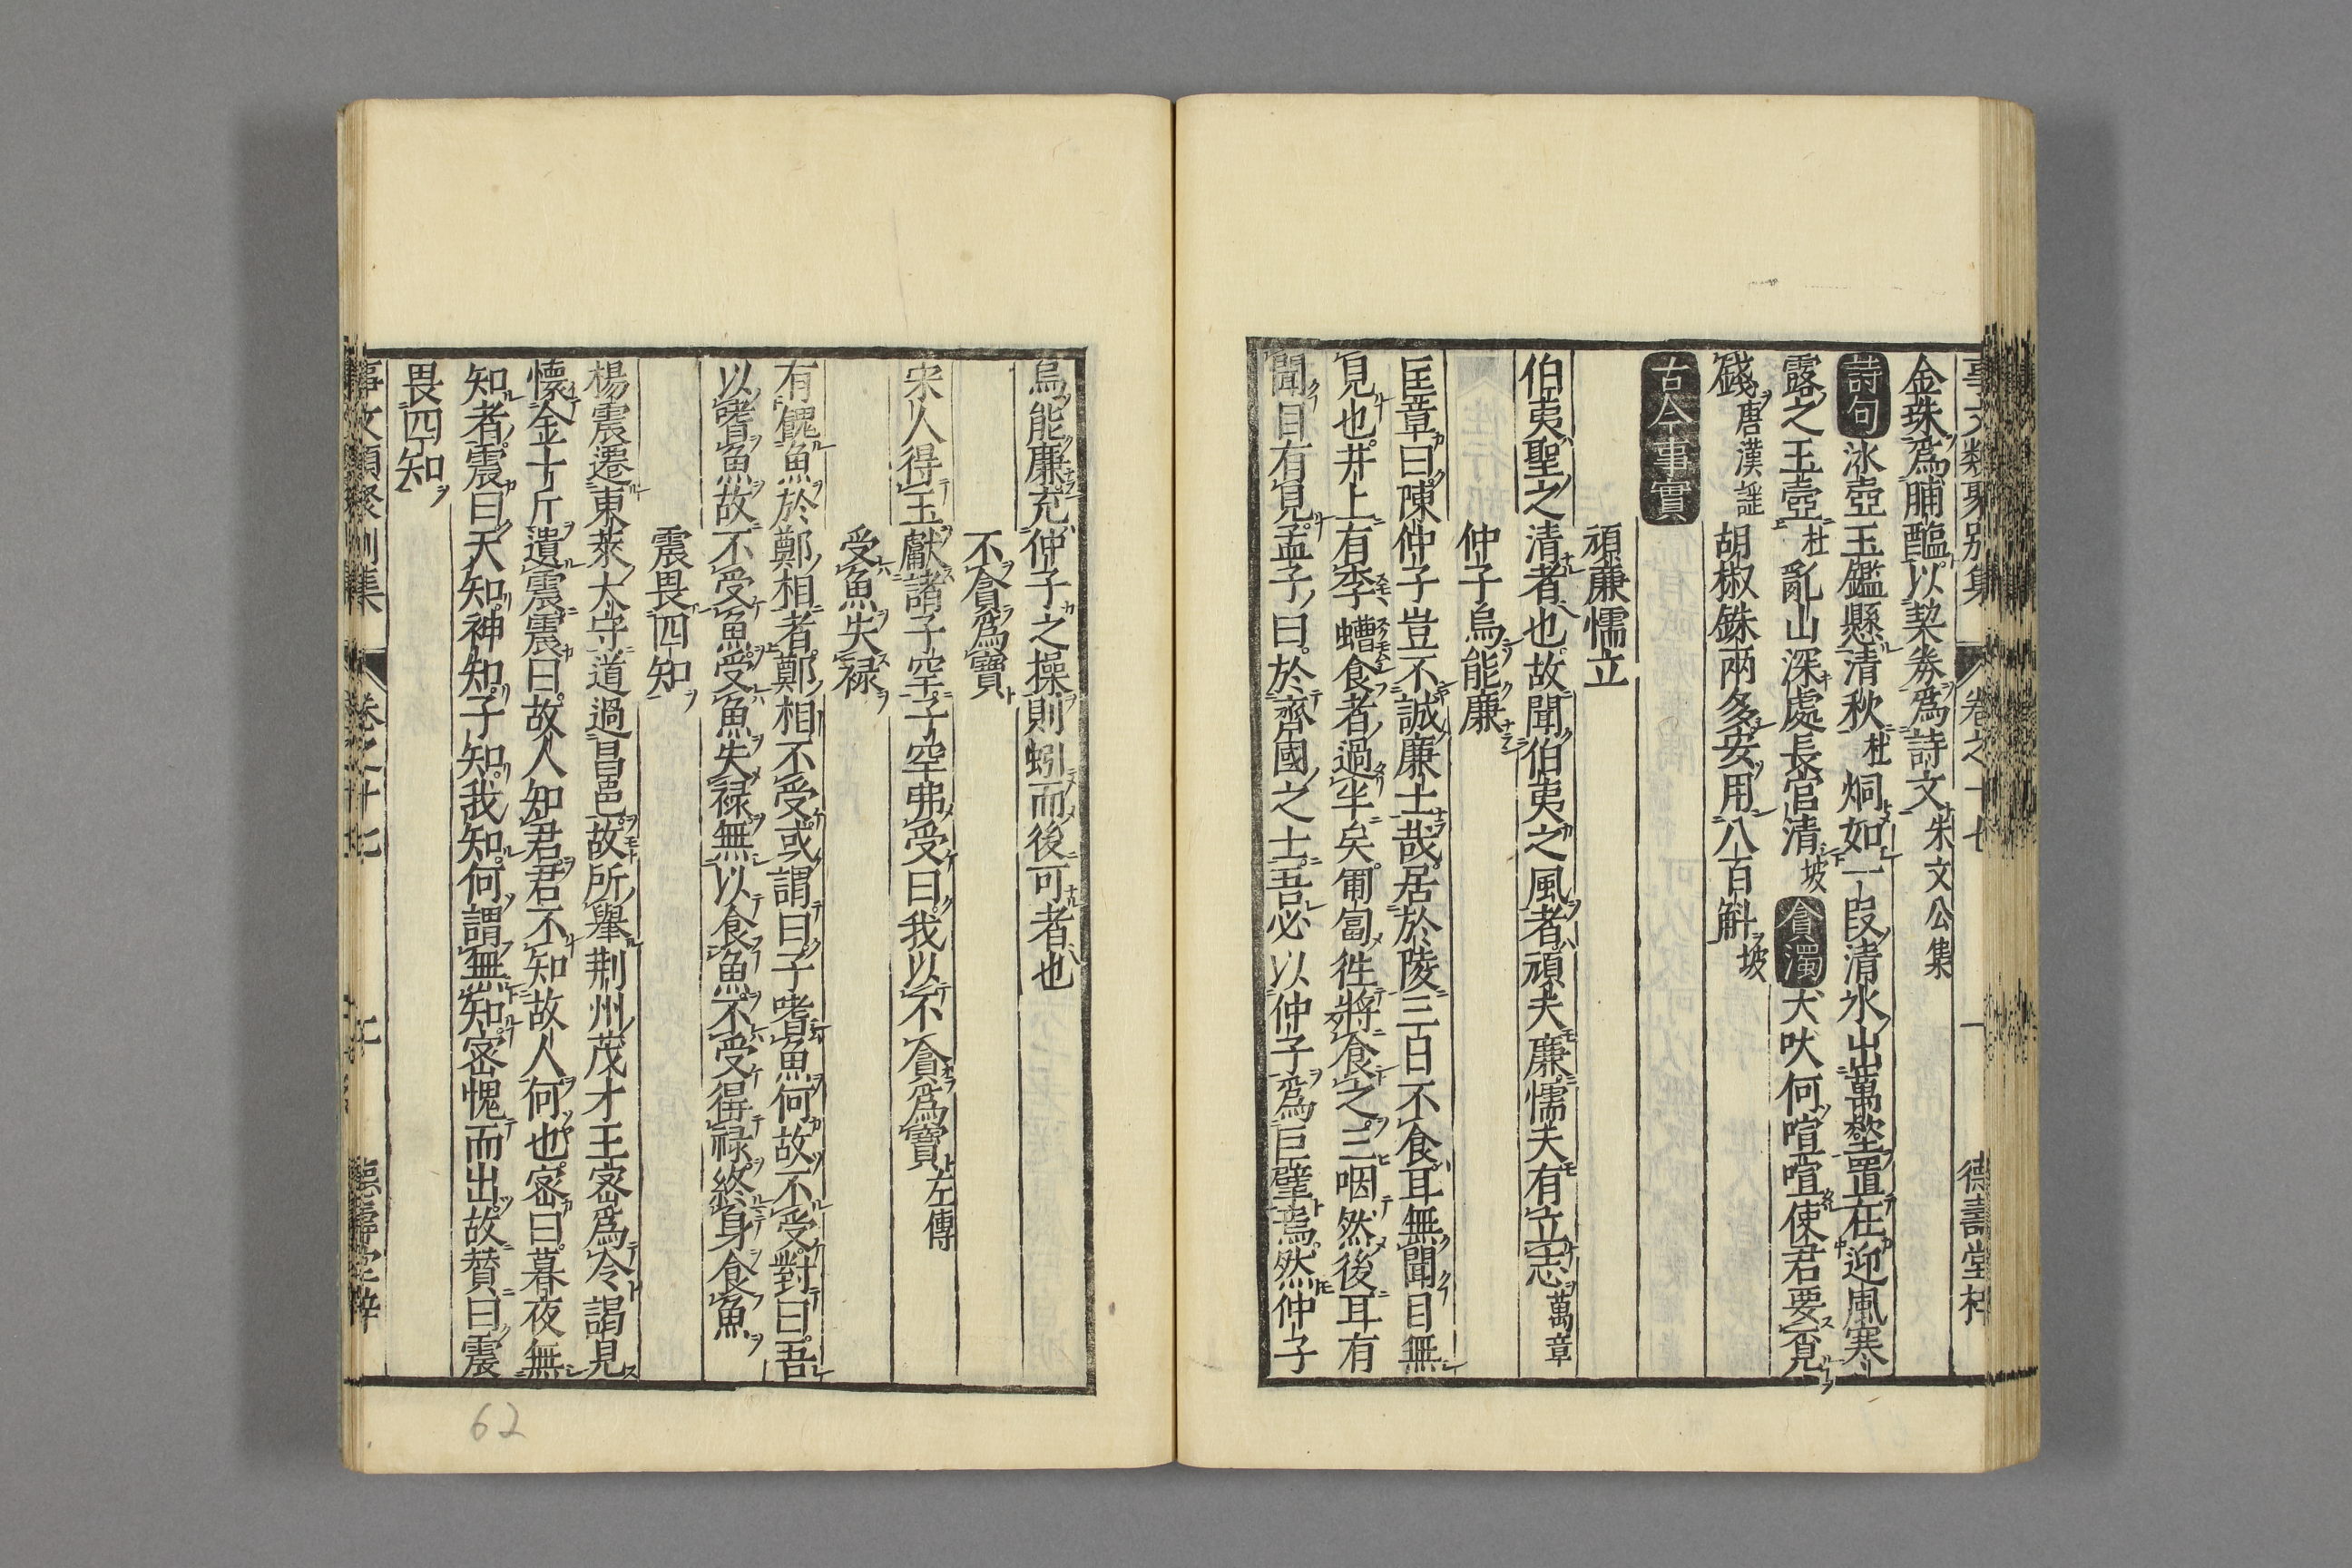 事文類聚別集 卷之十七 一 德壽堂梓
金珠爲脯醢以契券爲詩文朱文公集
詩句 冰壺玉鑑懸清秋杜 烱如一段清氷出萬壑置在迎風寒
露之玉壺杜 亂山深處長官清坡 貪濁 犬吠何喧喧使君要覓
錢唐漢謡 胡椒銖兩多安用八百斛坡
古今事實
頑廉懦立
伯夷聖之清者也故聞伯夷之風者頑夫廉懦夫有立志萬章
仲子烏能廉
匡章曰陳仲子豈不誠廉士哉居於陵三日不食耳無聞目無
見也井上有李螬食者過半矣匍匐徃將食之三咽然後耳有
聞目有見孟子曰於齊國之士吾必以仲子爲巨擘焉然仲子
烏能廉充仲子之操則蚓而後可者也
不貪爲寶
宋人得玉獻諸子罕子罕弗受曰我以不貪爲寶左傳
受魚失禄
有餽魚於鄭相者鄭相不受或謂曰子嗜魚何故不受對曰吾
以嗜魚故不受魚受魚失禄無以食魚不受得禄終身食魚
震畏四知
楊震遷東萊大守道過昌邑故所舉荆州茂才王宻爲令謁見
懷金十斤遺震震曰故人知君君不知故人何也宻曰暮夜無
知者震曰天知神知子知我知何謂無知宻愧而出故賛曰震
畏四知
事文類聚別集 卷之十七 德壽堂梓
62